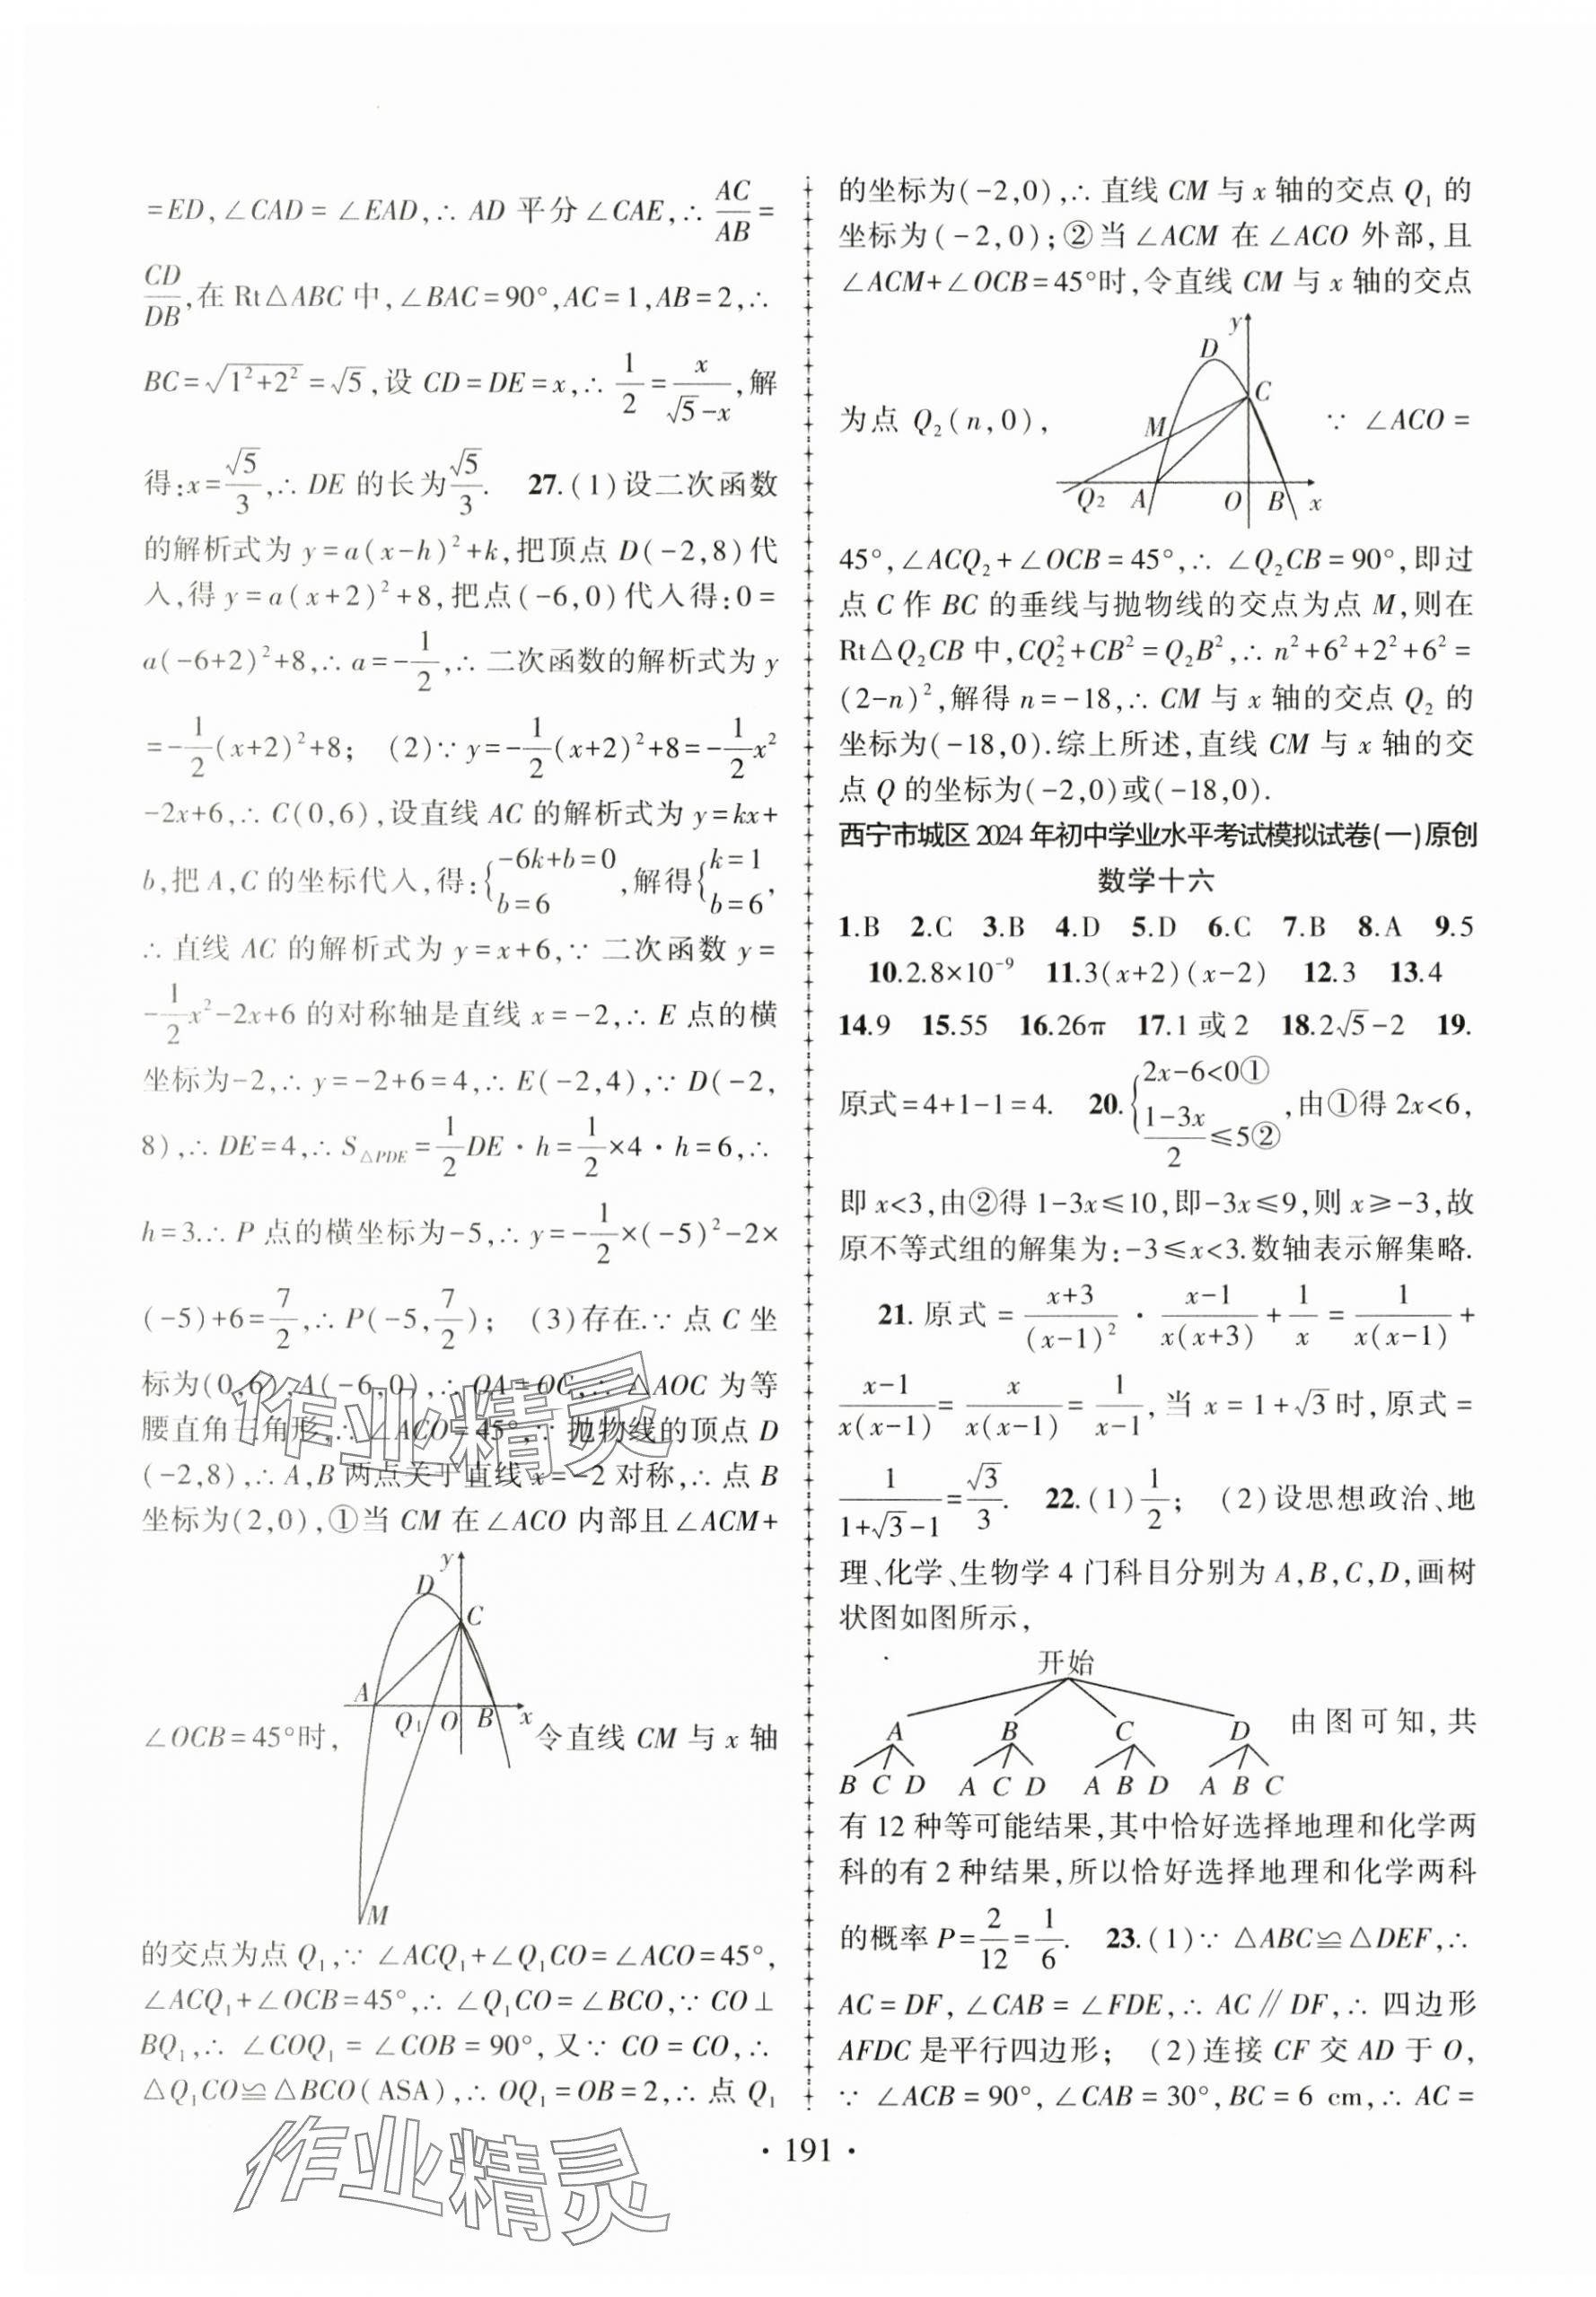 =ED,∠CAD=∠EAD,∴ AD 平分∠CAE,∴ AC/AB=
CD/DB,在 Rt△ABC 中,∠BAC=90°,AC=1,AB=2,∴
BC=√(1²+2²)=√5,设 CD=DE=x,∴ 1/2=x/(√5-x),解
得:x=√5/3,∴ DE 的长为√5/3. 27.(1)设二次函数
的解析式为 y=a(x-h)²+k,把顶点 D(-2,8)代
入,得 y=a(x+2)²+8,把点(-6,0)代入得:0=
a(-6+2)²+8,∴ a=-1/2,∴ 二次函数的解析式为 y
=-1/2(x+2)²+8; (2)∵ y=-1/2(x+2)²+8=-1/2x²
-2x+6,∴ C(0,6),设直线 AC 的解析式为 y=kx+
b,把 A,C 的坐标代入,得:{-6k+b=0 b=6,解得{k=1 b=6,
∴ 直线 AC 的解析式为 y=x+6,∵ 二次函数 y=
-1/2x²-2x+6 的对称轴是直线 x=-2,∴ E 点的横
坐标为-2,∴ y=-2+6=4,∴ E(-2,4),∵ D(-2,
8),∴ DE=4,∴ S△PDE=1/2DE·h=1/2×4·h=6,∴
h=3.∴ P 点的横坐标为-5,∴ y=-1/2×(-5)²-2×
(-5)+6=7/2,∴ P(-5,7/2); (3)存在.∵ 点 C 坐
标为(0,6),A(-6,0),∴ OA=OC,∴ △AOC 为等
腰直角三角形,∴ ∠ACO=45°,∵ 抛物线的顶点 D
(-2,8),∴ A,B 两点关于直线 x=-2 对称,∴ 点 B
坐标为(2,0),①当 CM 在∠ACO 内部且∠ACM+
y
D
C
A
Q₁ O B x
M
∠OCB=45°时, 令直线 CM 与 x 轴
的交点为点 Q₁,∵ ∠ACQ₁+∠Q₁CO=∠ACO=45°,
∠ACQ₁+∠OCB=45°,∴ ∠Q₁CO=∠BCO,∵ CO⊥
BQ₁,∴ ∠COQ₁=∠COB=90°,又∵ CO=CO,∴
△Q₁CO≌△BCO(ASA),∴ OQ₁=OB=2,∴ 点 Q₁
的坐标为(-2,0),∴ 直线 CM 与 x 轴的交点 Q₁ 的
坐标为(-2,0);②当∠ACM 在∠ACO 外部,且
∠ACM+∠OCB=45°时,令直线 CM 与 x 轴的交点
为点 Q₂(n,0), ∵ ∠ACO=
y
D
C
M
Q₂ A O B x
45°,∠ACQ₂+∠OCB=45°,∴ ∠Q₂CB=90°,即过
点 C 作 BC 的垂线与抛物线的交点为点 M,则在
Rt△Q₂CB 中,CQ₂²+CB²=Q₂B²,∴ n²+6²+2²+6²=
(2-n)²,解得 n=-18,∴ CM 与 x 轴的交点 Q₂ 的
坐标为(-18,0).综上所述,直线 CM 与 x 轴的交
点 Q 的坐标为(-2,0)或(-18,0).
西宁市城区 2024 年初中学业水平考试模拟试卷(一)原创
数学十六
1.B 2.C 3.B 4.D 5.D 6.C 7.B 8.A 9.5
10.2.8×10⁻⁹ 11.3(x+2)(x-2) 12.3 13.4
14.9 15.55 16.26π 17.1 或 2 18.2√5-2 19.
原式=4+1-1=4. 20.{2x-6<0① (1-3x)/2≤5②,由①得 2x<6,
即 x<3,由②得 1-3x≤10,即-3x≤9,则 x≥-3,故
原不等式组的解集为:-3≤x<3.数轴表示解集略.
21.原式=(x+3)/(x-1)²·(x-1)/x(x+3)+1/x=1/x(x-1)+
(x-1)/x(x-1)=x/x(x-1)=1/(x-1),当 x=1+√3时,原式=
1/(1+√3-1)=√3/3. 22.(1)1/2; (2)设思想政治、地
理、化学、生物学 4 门科目分别为 A,B,C,D,画树
状图如图所示,
开始
A B C D
B C D A C D A B D A B C
由图可知,共
有 12 种等可能结果,其中恰好选择地理和化学两
科的有 2 种结果,所以恰好选择地理和化学两科
的概率 P=2/12=1/6. 23.(1)∵ △ABC≌△DEF,∴
AC=DF,∠CAB=∠FDE,∴ AC∥DF,∴ 四边形
AFDC 是平行四边形; (2)连接 CF 交 AD 于 O,
∵ ∠ACB=90°,∠CAB=30°,BC=6 cm,∴ AC=
· 191 ·
作业精灵
作业精灵